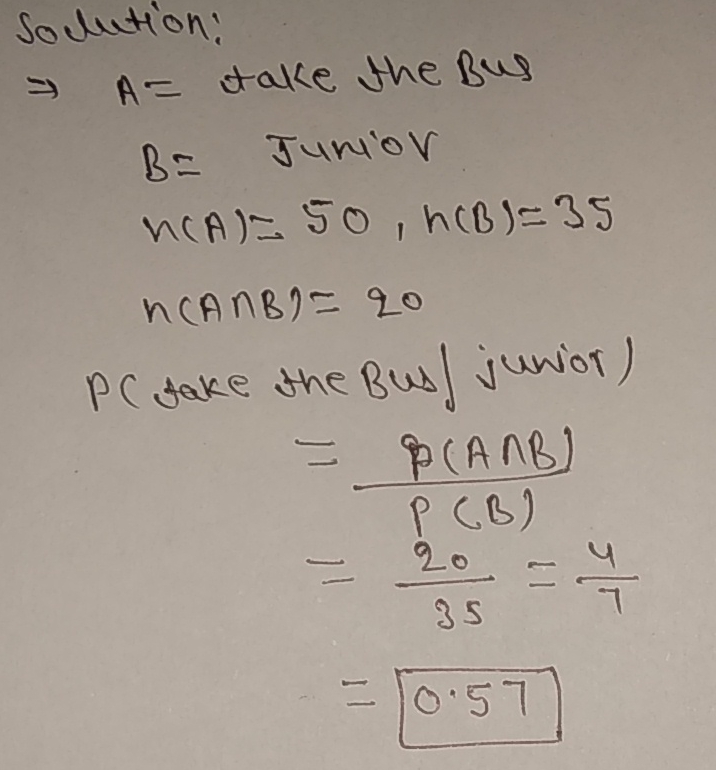 Solution:
⇒ A = take the Bus
B = Junior
n(A) = 50 , n(B) = 35
n(A∩B) = 20
P( take the Bus / junior )
= P(A∩B)
P (B)
= 20 = 4
35 7
= 0.57